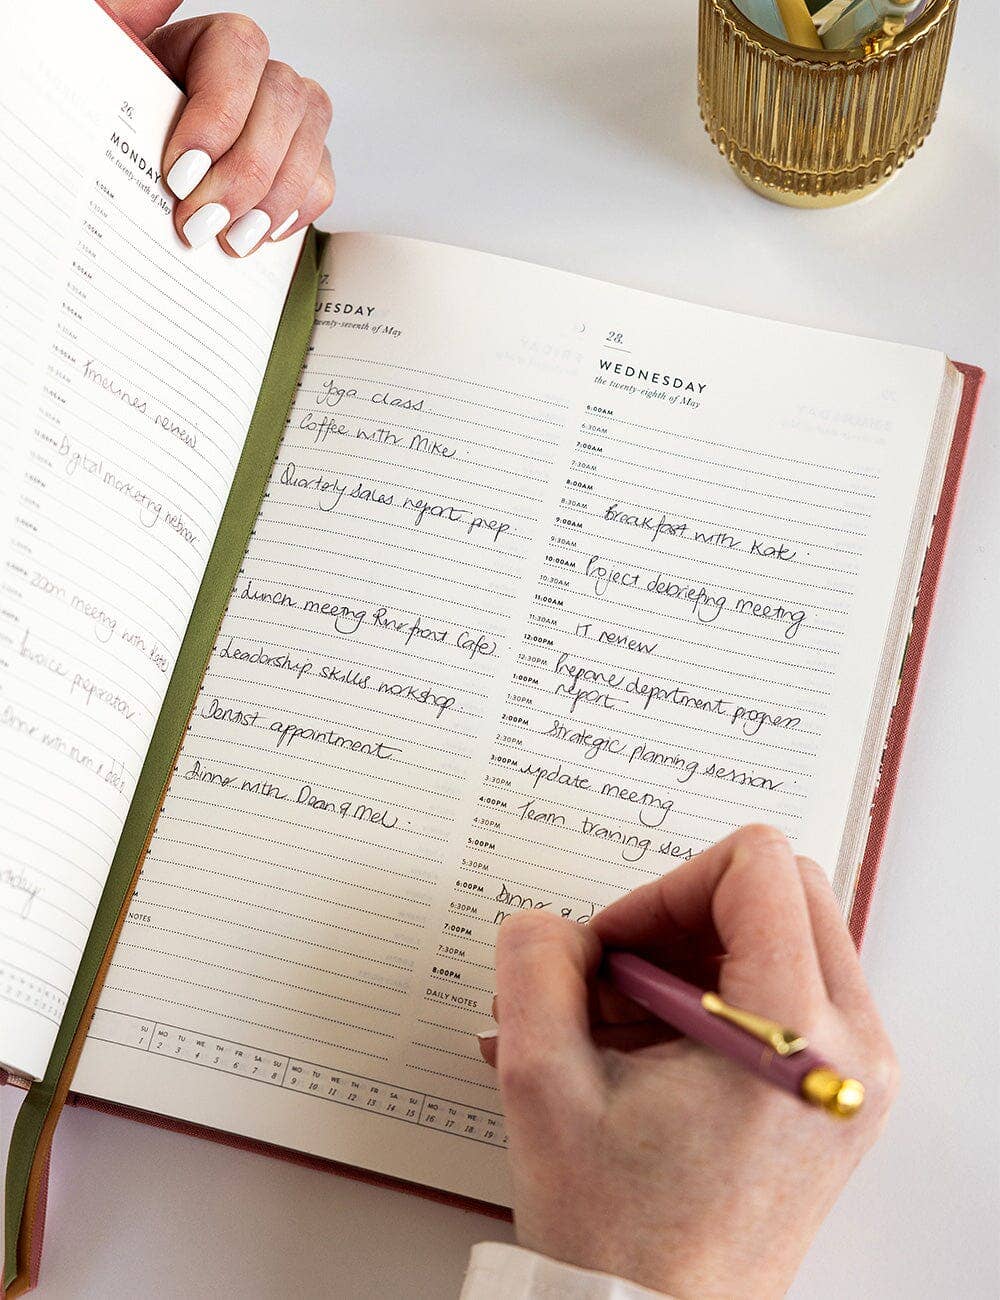 26.
MONDAY
the twenty-sixth of May
6:00AM
6:30AM
7:00AM
7:30AM
8:00AM
8:30AM
9:00AM
9:30AM
10:00AM
Timelines review
10:30AM
11:00AM
11:30AM
12:00PM
Digital marketing webinar
Zoom meeting with Kate
Invoice preparation
Dinner with mum & dad
7.
UESDAY
twenty-seventh of May
Yoga class
Coffee with Mike
Quarterly sales report prep
Lunch meeting Riverfront Cafe
Leadership skills workshop
Dentist appointment
Dinner with Dean & Mel
NOTES
SU MO TU WE TH FR SA SU MO TU WE TH FR SA SU MO TU WE TH
1 2 3 4 5 6 7 8 9 10 11 12 13 14 15 16 17 18 19 2
28.
WEDNESDAY
the twenty-eighth of May
6:00AM
6:30AM
7:00AM
7:30AM
8:00AM
8:30AM Breakfast with Kate
9:00AM
9:30AM
10:00AM Project debriefing meeting
10:30AM
11:00AM
11:30AM IT review
12:00PM
12:30PM Prepare department progress
1:00PM report
1:30PM
2:00PM Strategic planning session
2:30PM
3:00PM update meeting
3:30PM
4:00PM Team training ses
4:30PM
5:00PM
5:30PM
6:00PM Dinner & d
6:30PM m
7:00PM
7:30PM
8:00PM
DAILY NOTES